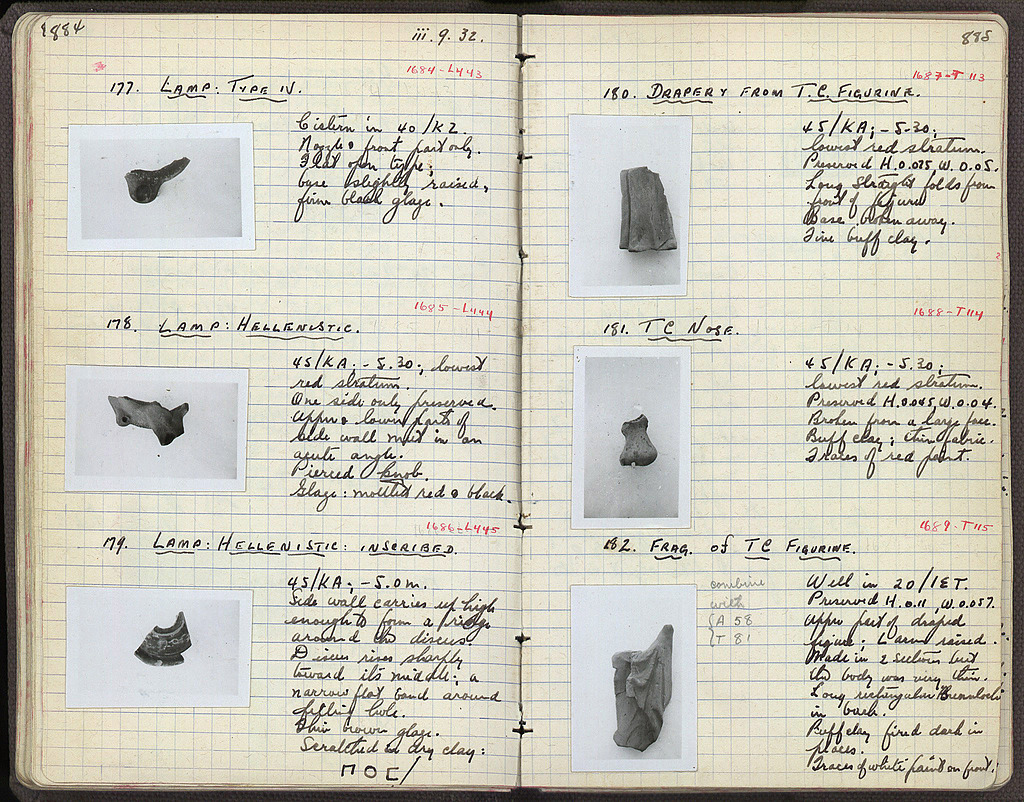 1884
iii. 9. 32.
1684-L443
177. LAMP: TYPE IV.
Cistern in 40/KZ.
Nozzle & front part only.
Flat open type;
base slightly raised,
firm black glaze.
1685-L444
178. LAMP: HELLENISTIC.
45/KA: -5.30; lowest
red stratum.
One side only preserved.
Upper & lower parts of
side wall meet in an
acute angle.
Pierced knob.
Glaze: mottled red & black.
1686-L445
179. LAMP: HELLENISTIC: INSCRIBED.
45/KA; -5.0 m.
Side wall carries up high
enough to form a ridge
around the discus.
Discus rises sharply
toward its middle; a
narrow flat band around
filling hole.
Thin brown glaze.
Scratched in dry clay:
ΠΟΣ/
885
1687-T113
180. DRAPERY FROM T.C. FIGURINE.
45/KA; -5.30;
lowest red stratum.
Preserved H. 0.075, W. 0.05.
Long straight folds from
front of figure
Base broken away.
Fine buff clay.
1688-T114
181. TC NOSE.
45/KA; -5.30;
lowest red stratum.
Preserved H. 0.045, W. 0.04.
Broken from a large face.
Buff clay; thin fabric.
Traces of red paint.
1689-T115
182. FRAG. of TC FIGURINE.
combine
with
A 58
T 81
Well in 20/IET.
Preserved H. 0.11, W. 0.057.
Upper part of draped
figure; L arm raised.
Made in 2 sections but
the body was very thin.
Long rectangular
in back.
Buff clay fired dark in
places.
Traces of white paint on front.